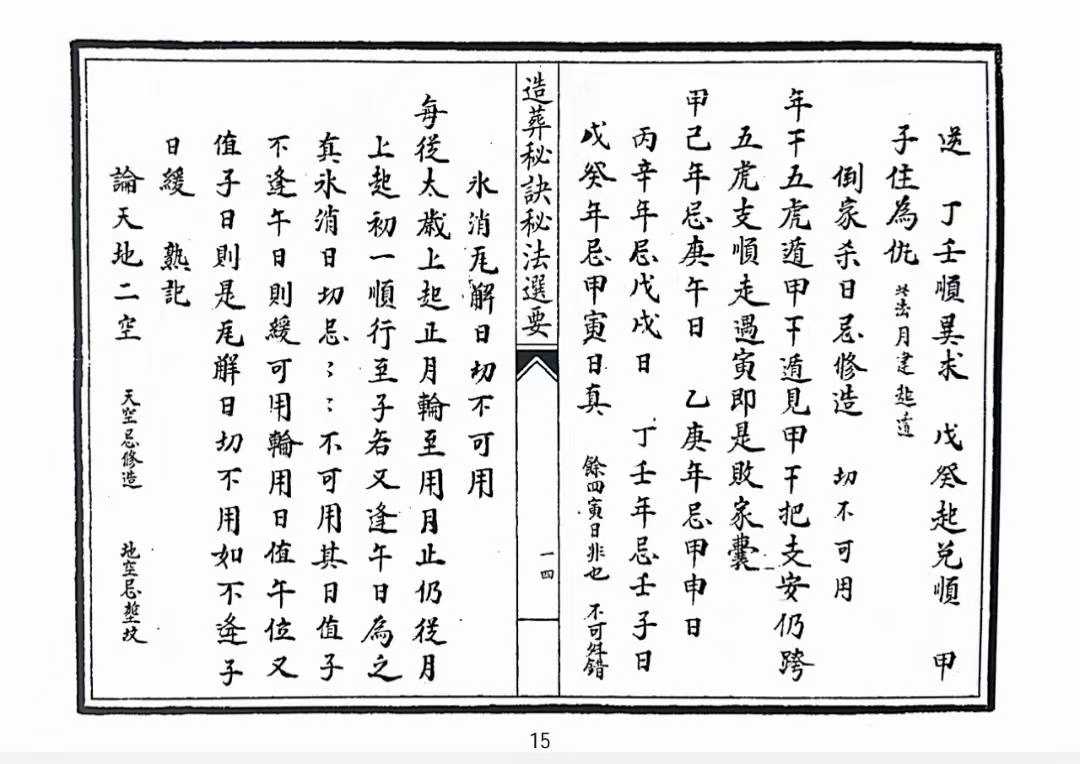 逆　丁壬順巽求　戊癸起兌順　甲
子住為仇　月建起遁
倒家杀日忌修造　切不可用
年干五虎遁甲干遁見甲干把支安仍跨
五虎支順走遇寅即是敗家囊
甲己年忌庚午日　乙庚年忌甲申日
丙辛年忌戊戌日　丁壬年忌壬子日
戊癸年忌甲寅日真　餘四寅日非也　不可舛錯
造葬秘訣秘法選要
一四
氷消瓦解日切不可用
每從太歲上起正月輪至用月止仍從月
上起初一順行至子若又逢午日為之
真氷消日切忌〻〻不可用其日值子
不逢午日則緩可用輪用日值午位又
值子日則是瓦解日切不用如不逢子
日緩　熟記
論天地二空　天空忌修造　地空忌塟坟
15